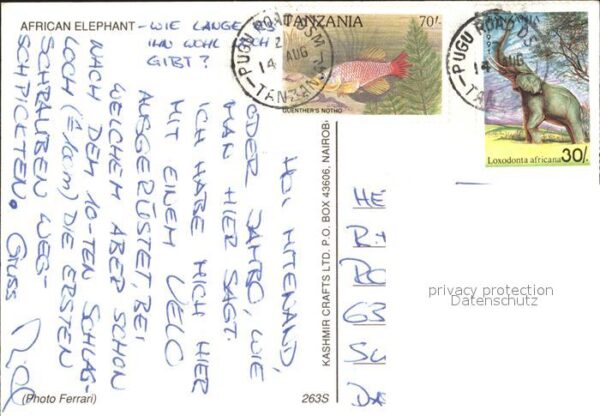 AFRICAN ELEPHANT - WIE LANGE ES
IHN WOHL NOCH
GIBT?
HOI MITENAND,
ODER JAMBO, WIE
MAN HIER SAGT.
ICH HABE MICH HIER
MIT EINEM VELO
AUSGERÜSTET, BEI
WELCHEM ABER SCHON
NACH DEM 10-TEN SCHLAG-
LOCH (È 10cm) DIE ERSTEN
SCHRAUBEN WEG-
SPICKTEN. GRUSS
(Photo Ferrari)
263S
KASHMIR CRAFTS LTD. P.O. BOX 43606, NAIROBI
TANZANIA
70/-
GUENTHER'S NOTHO
PUGU ROAD DSM
14 AUG
TANZANIA
PUGU ROAD DSM
14 AUG
Loxodonta africana
30/-
HE
R+
RO
63
SU
DA
privacy protection
Datenschutz